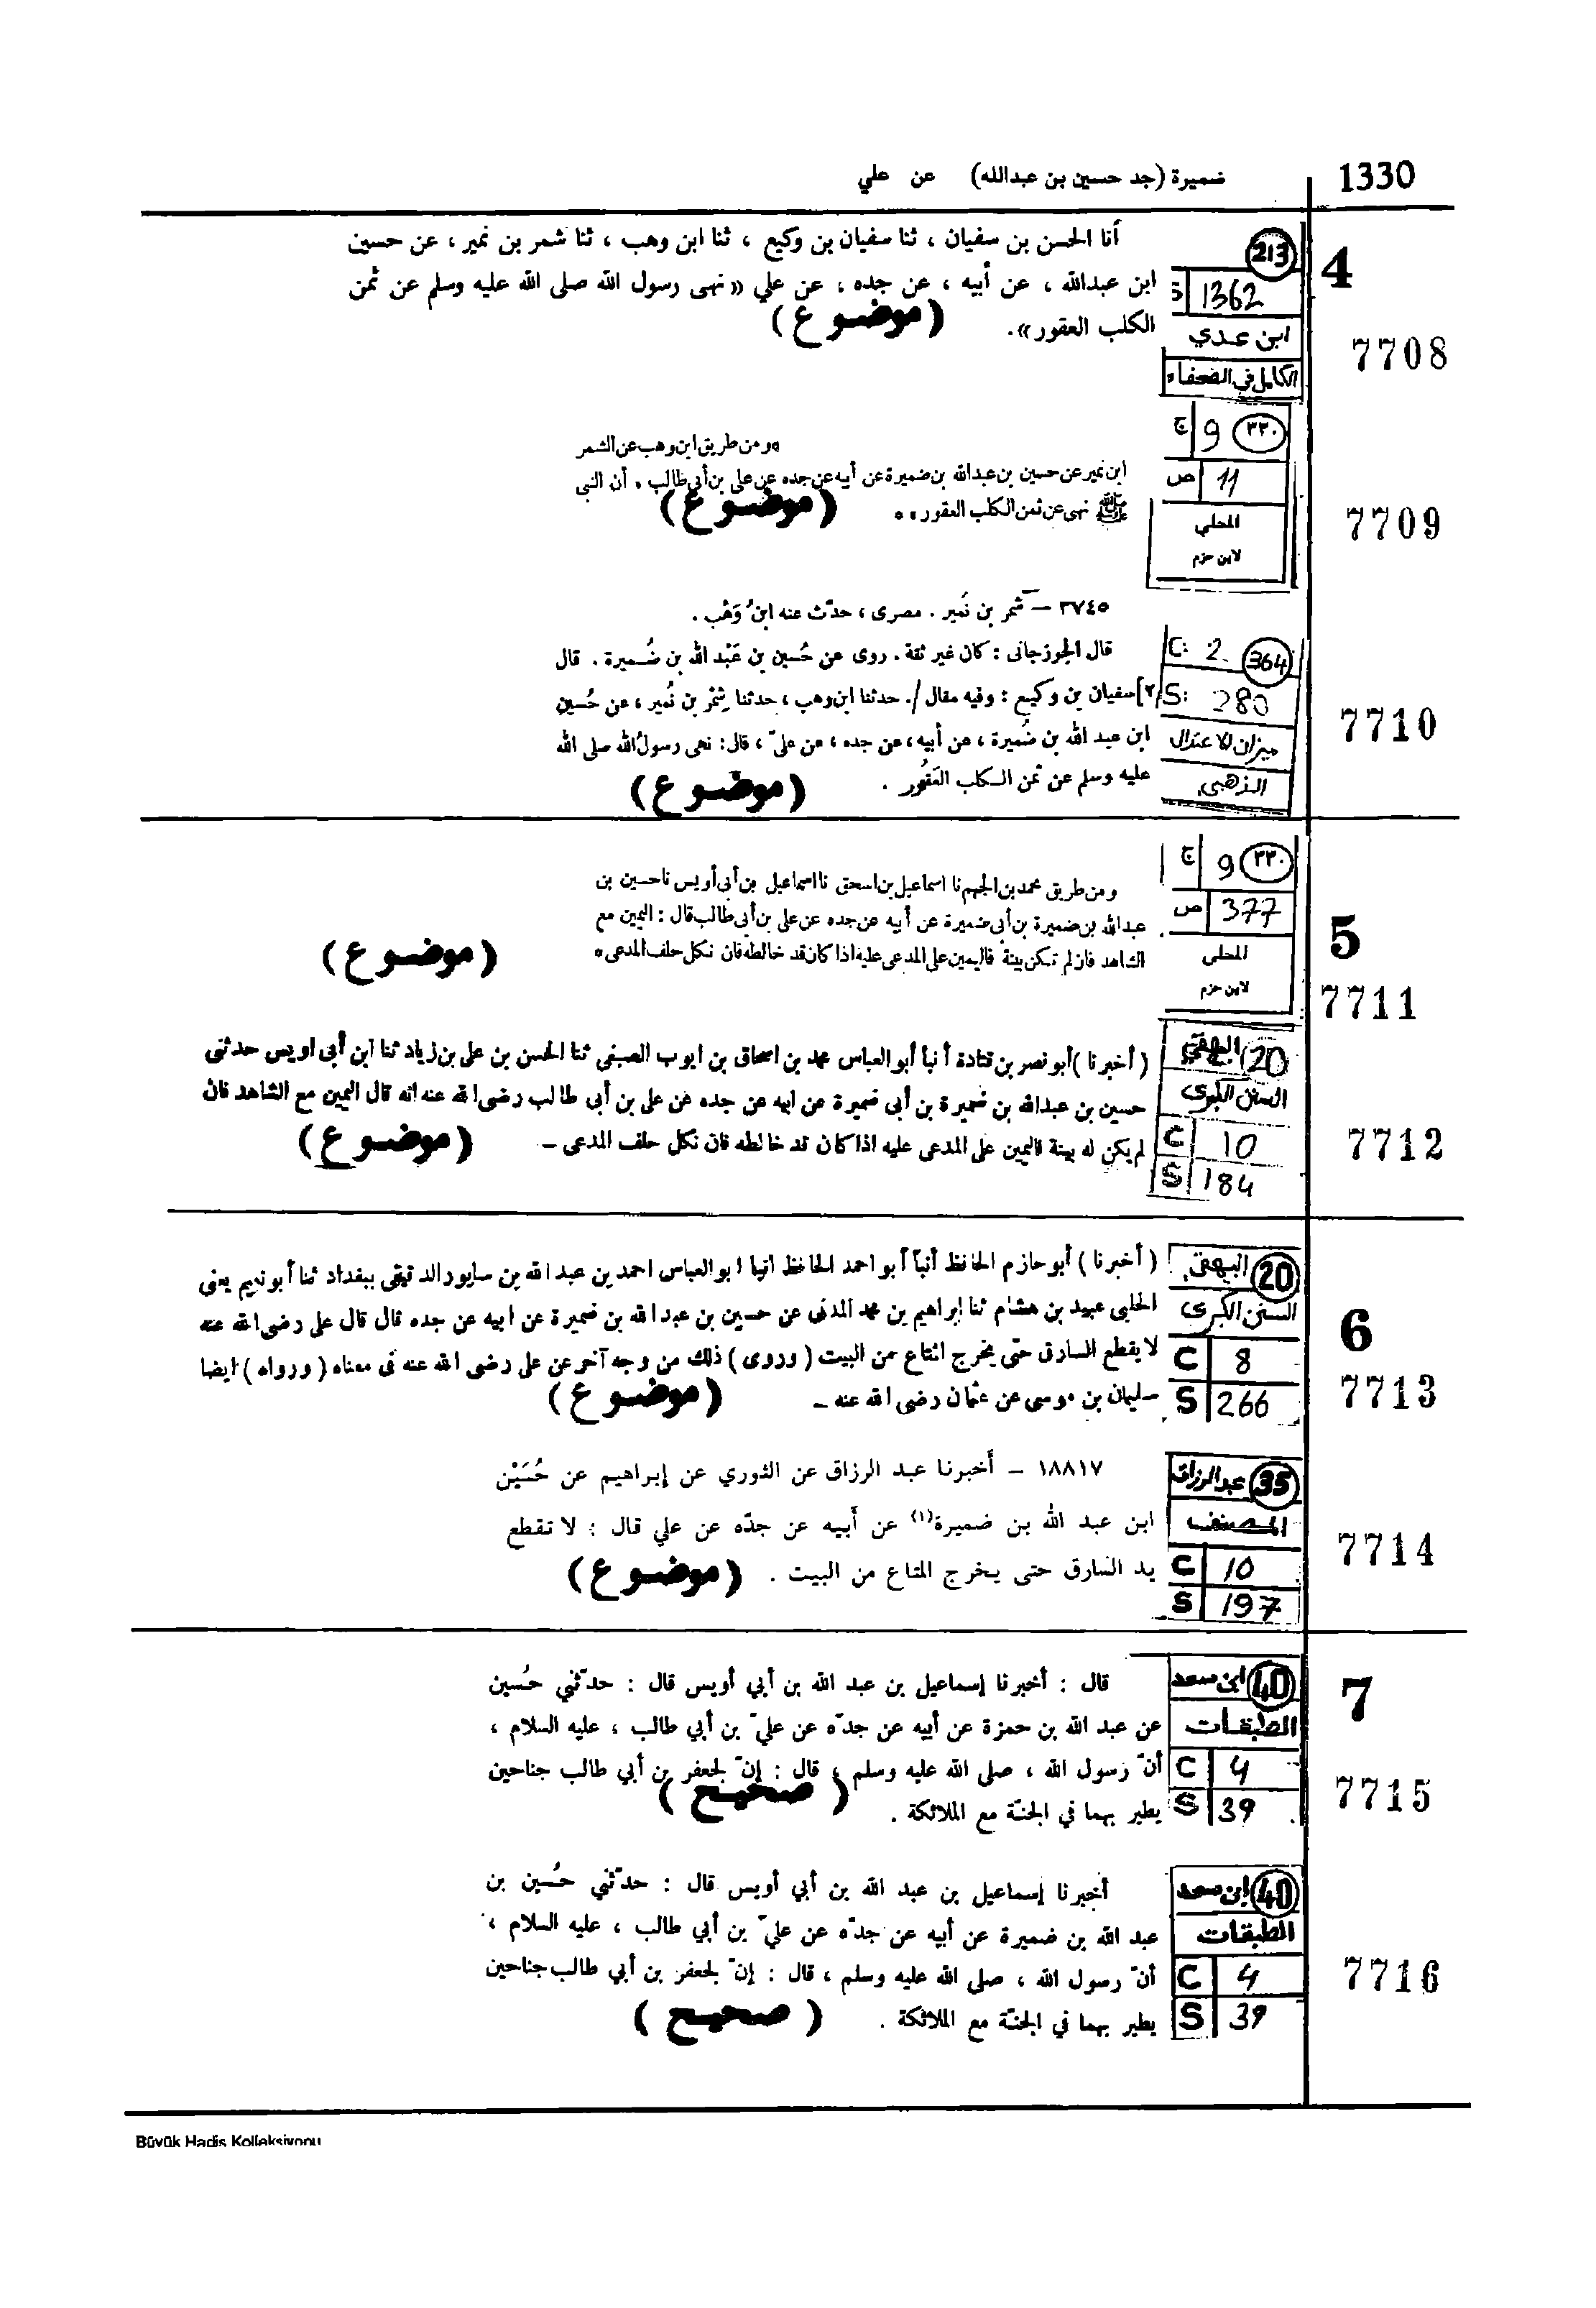 1330
ضميرة (جد حسين بن عبدالله) عن علي
4
213
S 1362
ابن عدي
الكامل في الضعفاء
7708
أنا الحسن بن سفيان ، ثنا سفيان بن وكيع ، ثنا ابن وهب ، ثنا شمر بن نمير ، عن حسين
ابن عبدالله ، عن أبيه ، عن جده ، عن علي «نهى رسول الله صلى الله عليه وسلم عن ثمن
الكلب العقور».
(موضوع)
٣٣٠ 9 ج
11 ص
المحلي
لابن حزم
7709
ومن طريق ابن وهب عن الشمر
ابن نمير عن حسين بن عبدالله بن ضميرة عن أبيه عن جده عن علي بن أبي طالب . أن النبي
ﷺ نهى عن ثمن الكلب العقور . *
(موضوع)
364
C: 2
S: 280
ميزان الاعتدال
الذهبي
7710
٣٧٤٥ – شمر بن نُمير . مصرى ، حدّث عنه ابنُ وَهْب .
قال الجوزجانى : كان غير ثقة . روى عن حُسين بن عَبْد الله بن ضُميرة . قال
[٢/ سفيان بن وكيع : وفيه مقال /. حدثنا ابن وهب ، حدثنا شِمْر بن نُمير ، عن حُسين
ابن عبد الله بن ضُميرة ، عن أبيه ، عن جده ، عن علىّ ، قال : نهى رسولُ الله صلى الله
عليه وسلم عن ثمن الكلب العَقُور .
(موضوع)
5
٣٣٠ 9 ج
377 ص
المحلى
لابن حزم
7711
ومن طريق محمد بن الجهم نا اسماعيل بن اسحق نا اسماعيل بن أبى أويس نا حسين بن
عبدالله بن ضميرة بن أبى ضميرة عن أبيه عن جده عن على بن أبى طالب قال : اليمين مع
الشاهد فان لم تكن بينة فاليمين على المدعى عليه اذا كان قد خالطه فان نكل حلف المدعى *
(موضوع)
20 البيهقي
السنن الكبرى
C 10
S 184
7712
( أخبرنا ) أبو نصر بن قتادة أنبأ أبو العباس محمد بن اسحاق بن ايوب الصبغى ثنا الحسن بن على بن زياد ثنا ابن أبى اويس حدثنى
حسين بن عبدالله بن ضميرة بن أبى ضميرة عن ابيه عن جده عن على بن أبى طالب رضى الله عنه انه قال اليمين مع الشاهد فان
لم يكن له بينة فاليمين على المدعى عليه اذا كان قد خالطه فان نكل حلف المدعى –
(موضوع)
6
20 البيهقى
السنن الكبرى
C 8
S 266
7713
( أخبرنا ) أبو حازم الحافظ أنبأ أبو احمد الحافظ انبأ ابو العباس احمد بن عبد الله بن سابور الدقيقى ببغداد ثنا أبو نعيم يعنى
الحلبى عبيد بن هشام ثنا إبراهيم بن محمد المدنى عن حسين بن عبد الله بن ضميرة عن ابيه عن جده قال قال على رضى الله عنه
لا يقطع السارق حتى يخرج المتاع من البيت ( وروى ) ذلك من وجه آخر عن على رضى الله عنه فى معناه ( ورواه ) ايضا
سليمان بن موسى عن عثمان رضى الله عنه –
(موضوع)
35 عبد الرزاق
المصنف
C 10
S 197
7714
١٨٨١٧ – أخبرنا عبد الرزاق عن الثوري عن إبراهيم عن حُسَيْن
ابن عبد الله بن ضميرة(١) عن أبيه عن جدّه عن علي قال : لا تقطع
يد السارق حتى يخرج المتاع من البيت .
(موضوع)
7
40 ابن سعد
الطبقات
C 4
S 39
7715
قال : أخبرنا إسماعيل بن عبد الله بن أبي أويس قال : حدّثني حُسين
عن عبد الله بن حمزة عن أبيه عن جدّه عن عليّ بن أبي طالب ، عليه السلام ،
أنّ رسول الله ، صلى الله عليه وسلم ، قال : إنّ لجعفر بن أبي طالب جناحين
يطير بهما في الجنّة مع الملائكة .
(صحيح)
40 ابن سعد
الطبقات
C 4
S 39
7716
أخبرنا إسماعيل بن عبد الله بن أبي أويس قال : حدّثني حُسين بن
عبد الله بن ضميرة عن أبيه عن جدّه عن عليّ بن أبي طالب ، عليه السلام ،
أنّ رسول الله ، صلى الله عليه وسلم ، قال : إنّ لجعفر بن أبي طالب جناحين
يطير بهما في الجنّة مع الملائكة .
(صحيح)
Büyük Hadis Kolleksiyonu